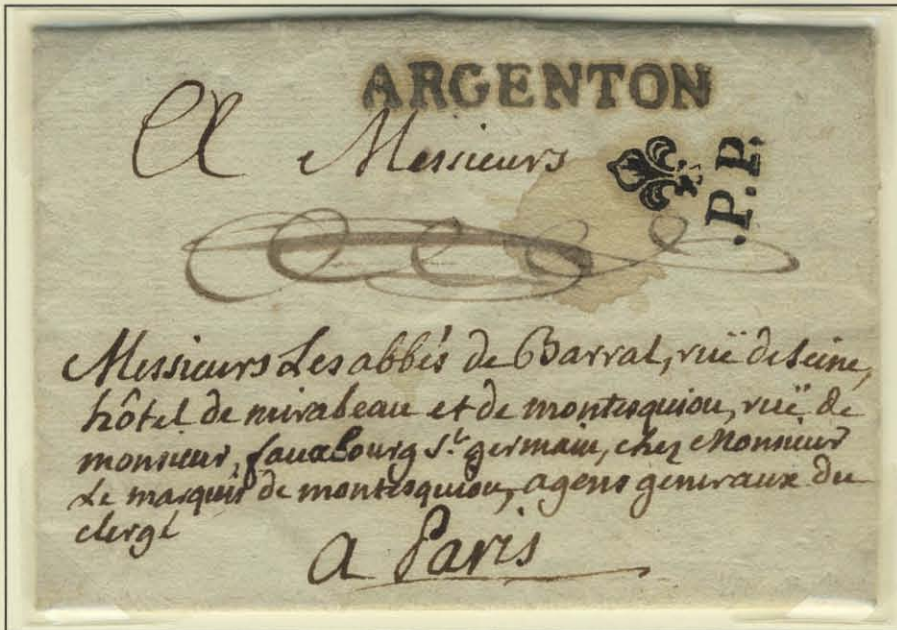 ARGENTON
A Messieurs
.P.P.
Messieurs Les abbés de Barral, ruë de seine,
hôtel de mirabeau et de montesquiou, ruë de
monsieur, fauxbourg St. germain, chez Monsieur
Le marquis de montesquiou, agens generaux du
clergé
a Paris